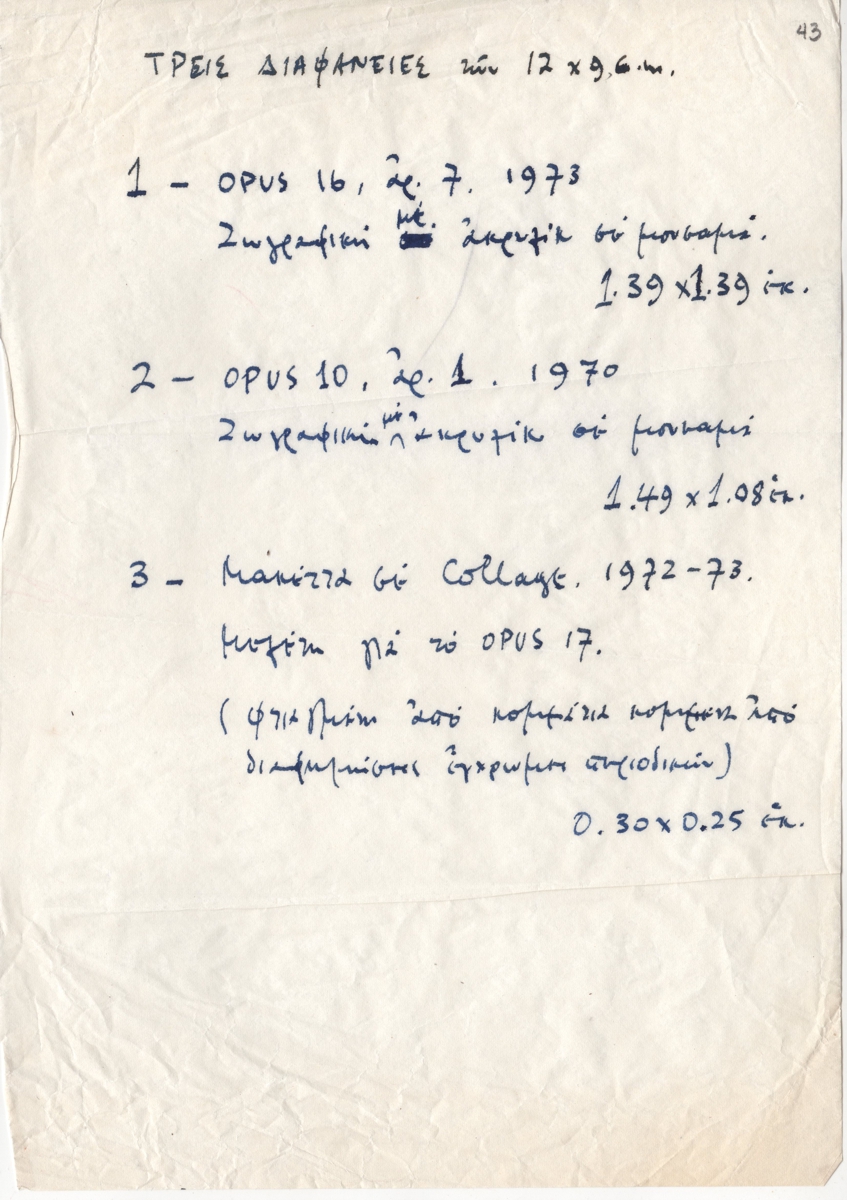 43
ΤΡΕΙΣ ΔΙΑΦΑΝΕΙΕΣ τῶν 12 x 9 c.m.
1 - OPUS 16, ἀρ. 7. 1973
Ζωγραφική μέ ἀκρυλίκ σέ μουσαμά.
1.39 x 1.39 ἑκ.
2 - OPUS 10, ἀρ. 1. 1970
Ζωγραφική μέ ἀκρυλίκ σέ μουσαμά
1.49 x 1.08 ἑκ.
3 - Μακέττα σέ Collage. 1972-73.
Μελέτη γιά τό OPUS 17.
(φτιαγμένη ἀπό κομμάτια κομμένα ἀπό
διαφημίσεις ἔγχρωμες περιοδικῶν)
0.30 x 0.25 ἑκ.